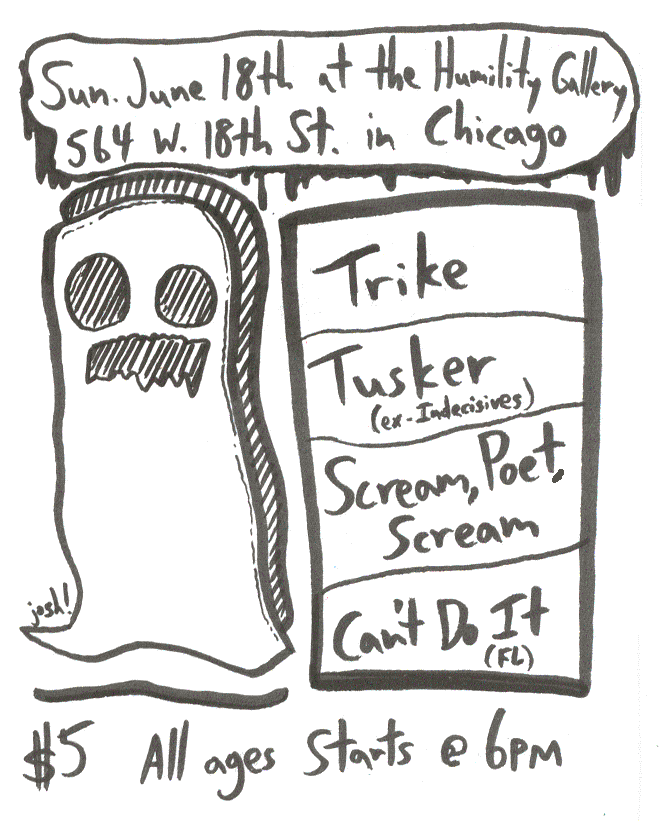 Sun. June 18th at the Humility Gallery
564 W. 18th St. in Chicago
Trike
Tusker
(ex-Indecisives)
Scream, Poet,
Scream
Can't Do It
(FL)
josh!
$5 All ages Starts @ 6PM